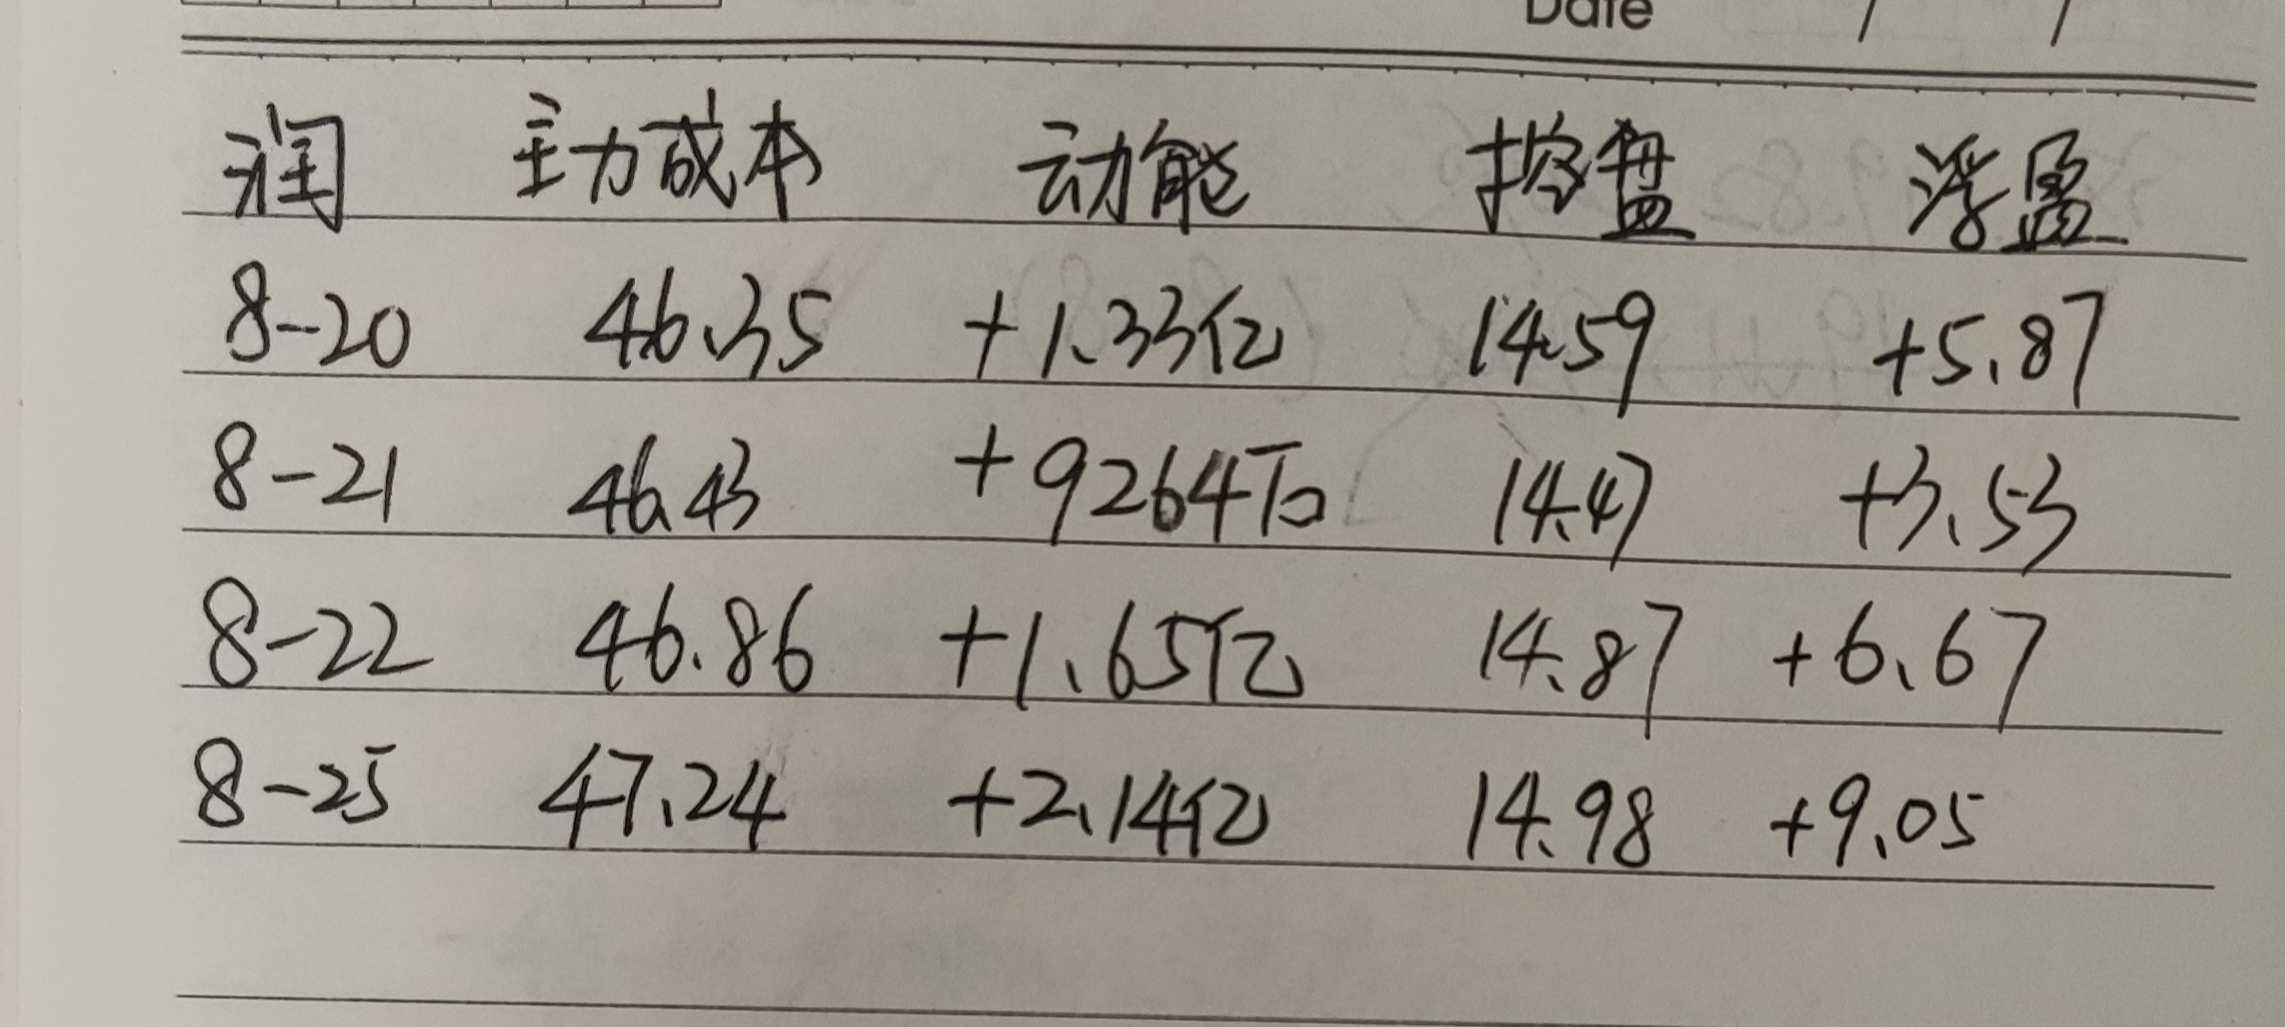 Date / /
润 主力成本 动能 控盘 浮盈
8-20 46.35 +1.33亿 14.59 +5.87
8-21 46.43 +9264万 14.47 +3.53
8-22 46.86 +1.65亿 14.87 +6.67
8-25 47.24 +2.14亿 14.98 +9.05